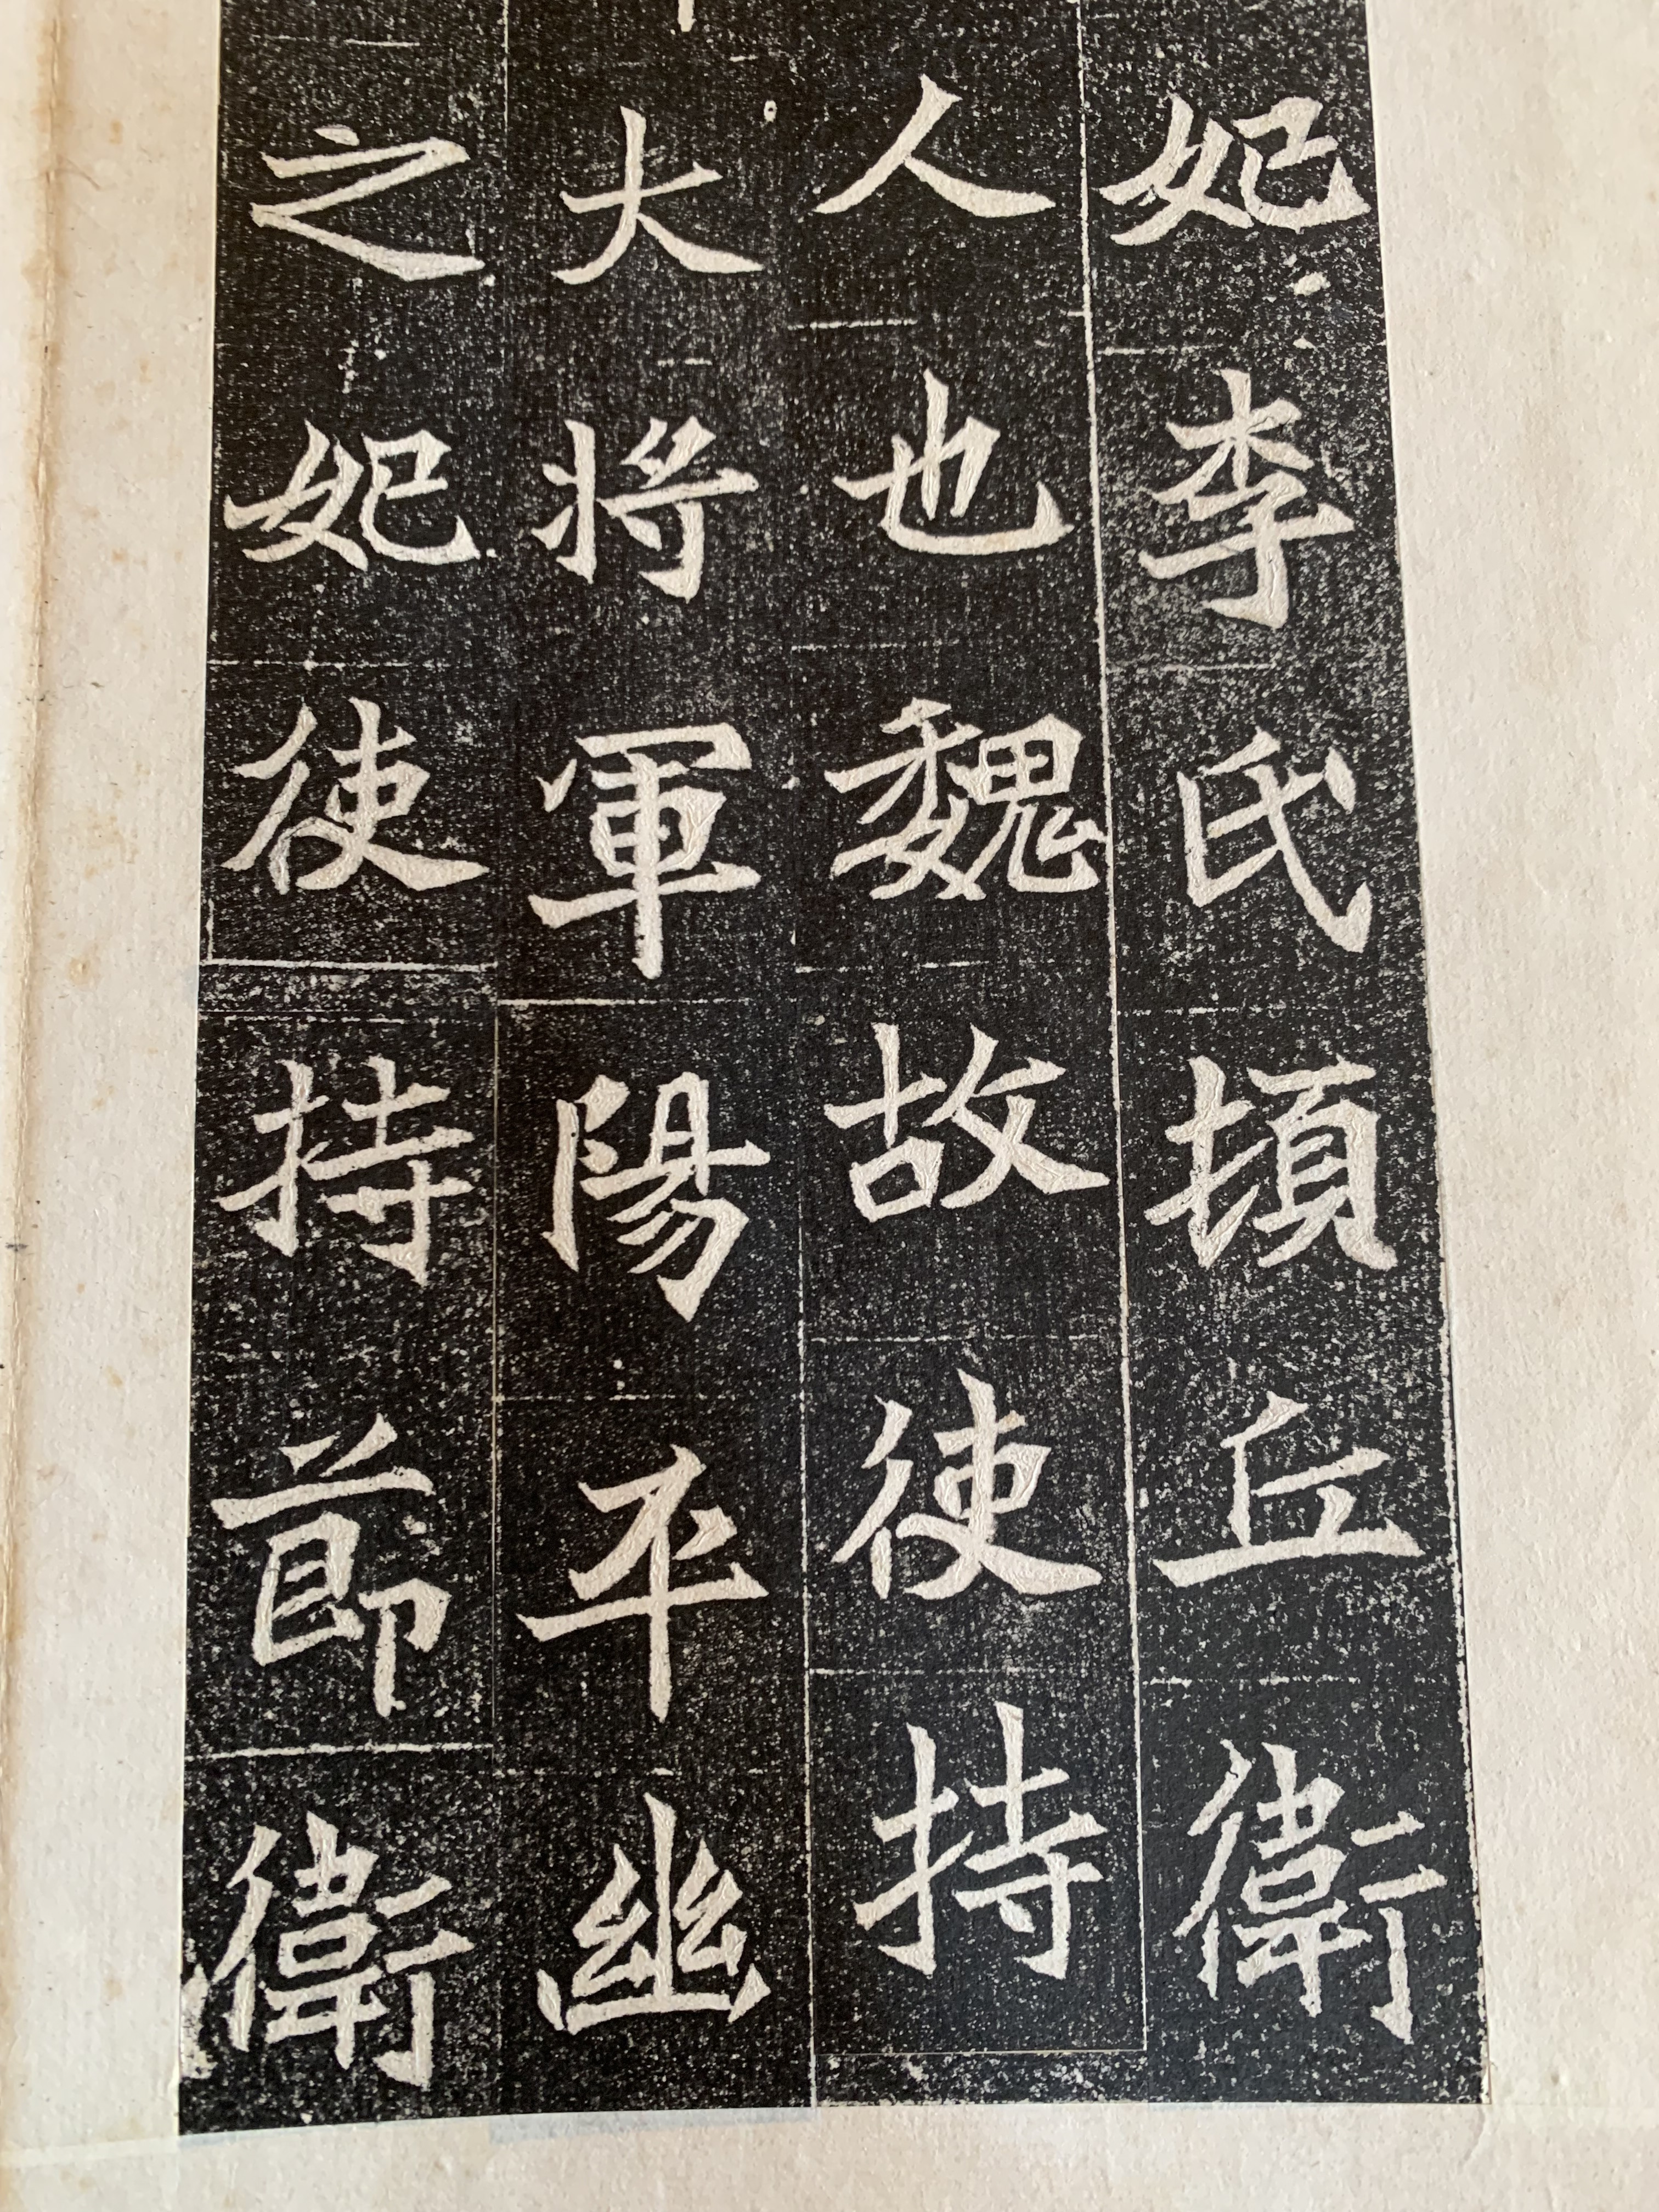 妃李氏頓丘衛
人也魏故使持
大將軍陽平幽
之妃使持節衛